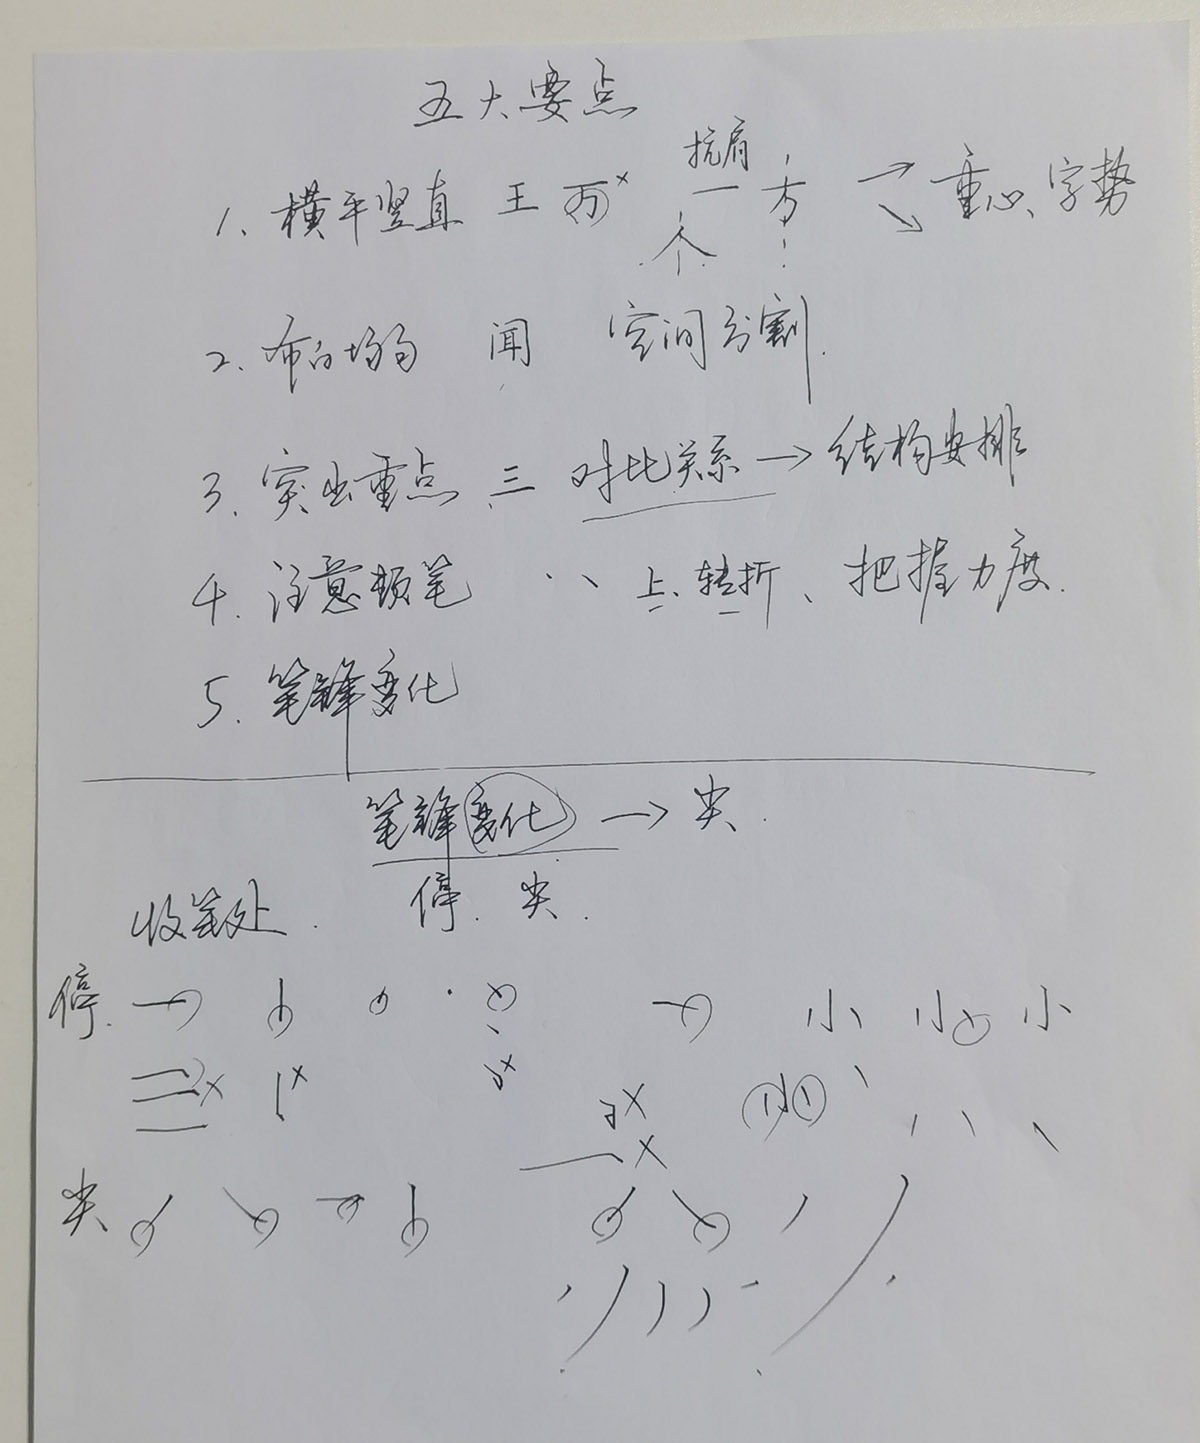 五大要点
抗肩
1. 横平竖直 王 万× 一 方 → 重心、字势
个
2. 布白均匀 闻 空间分割.
3. 突出重点 三 对比关系 → 结构安排
4. 注意顿笔 上、转折、把握力度.
5. 笔锋变化
笔锋变化 → 尖.
收笔处. 停. 尖.
停. 小 小 小
尖